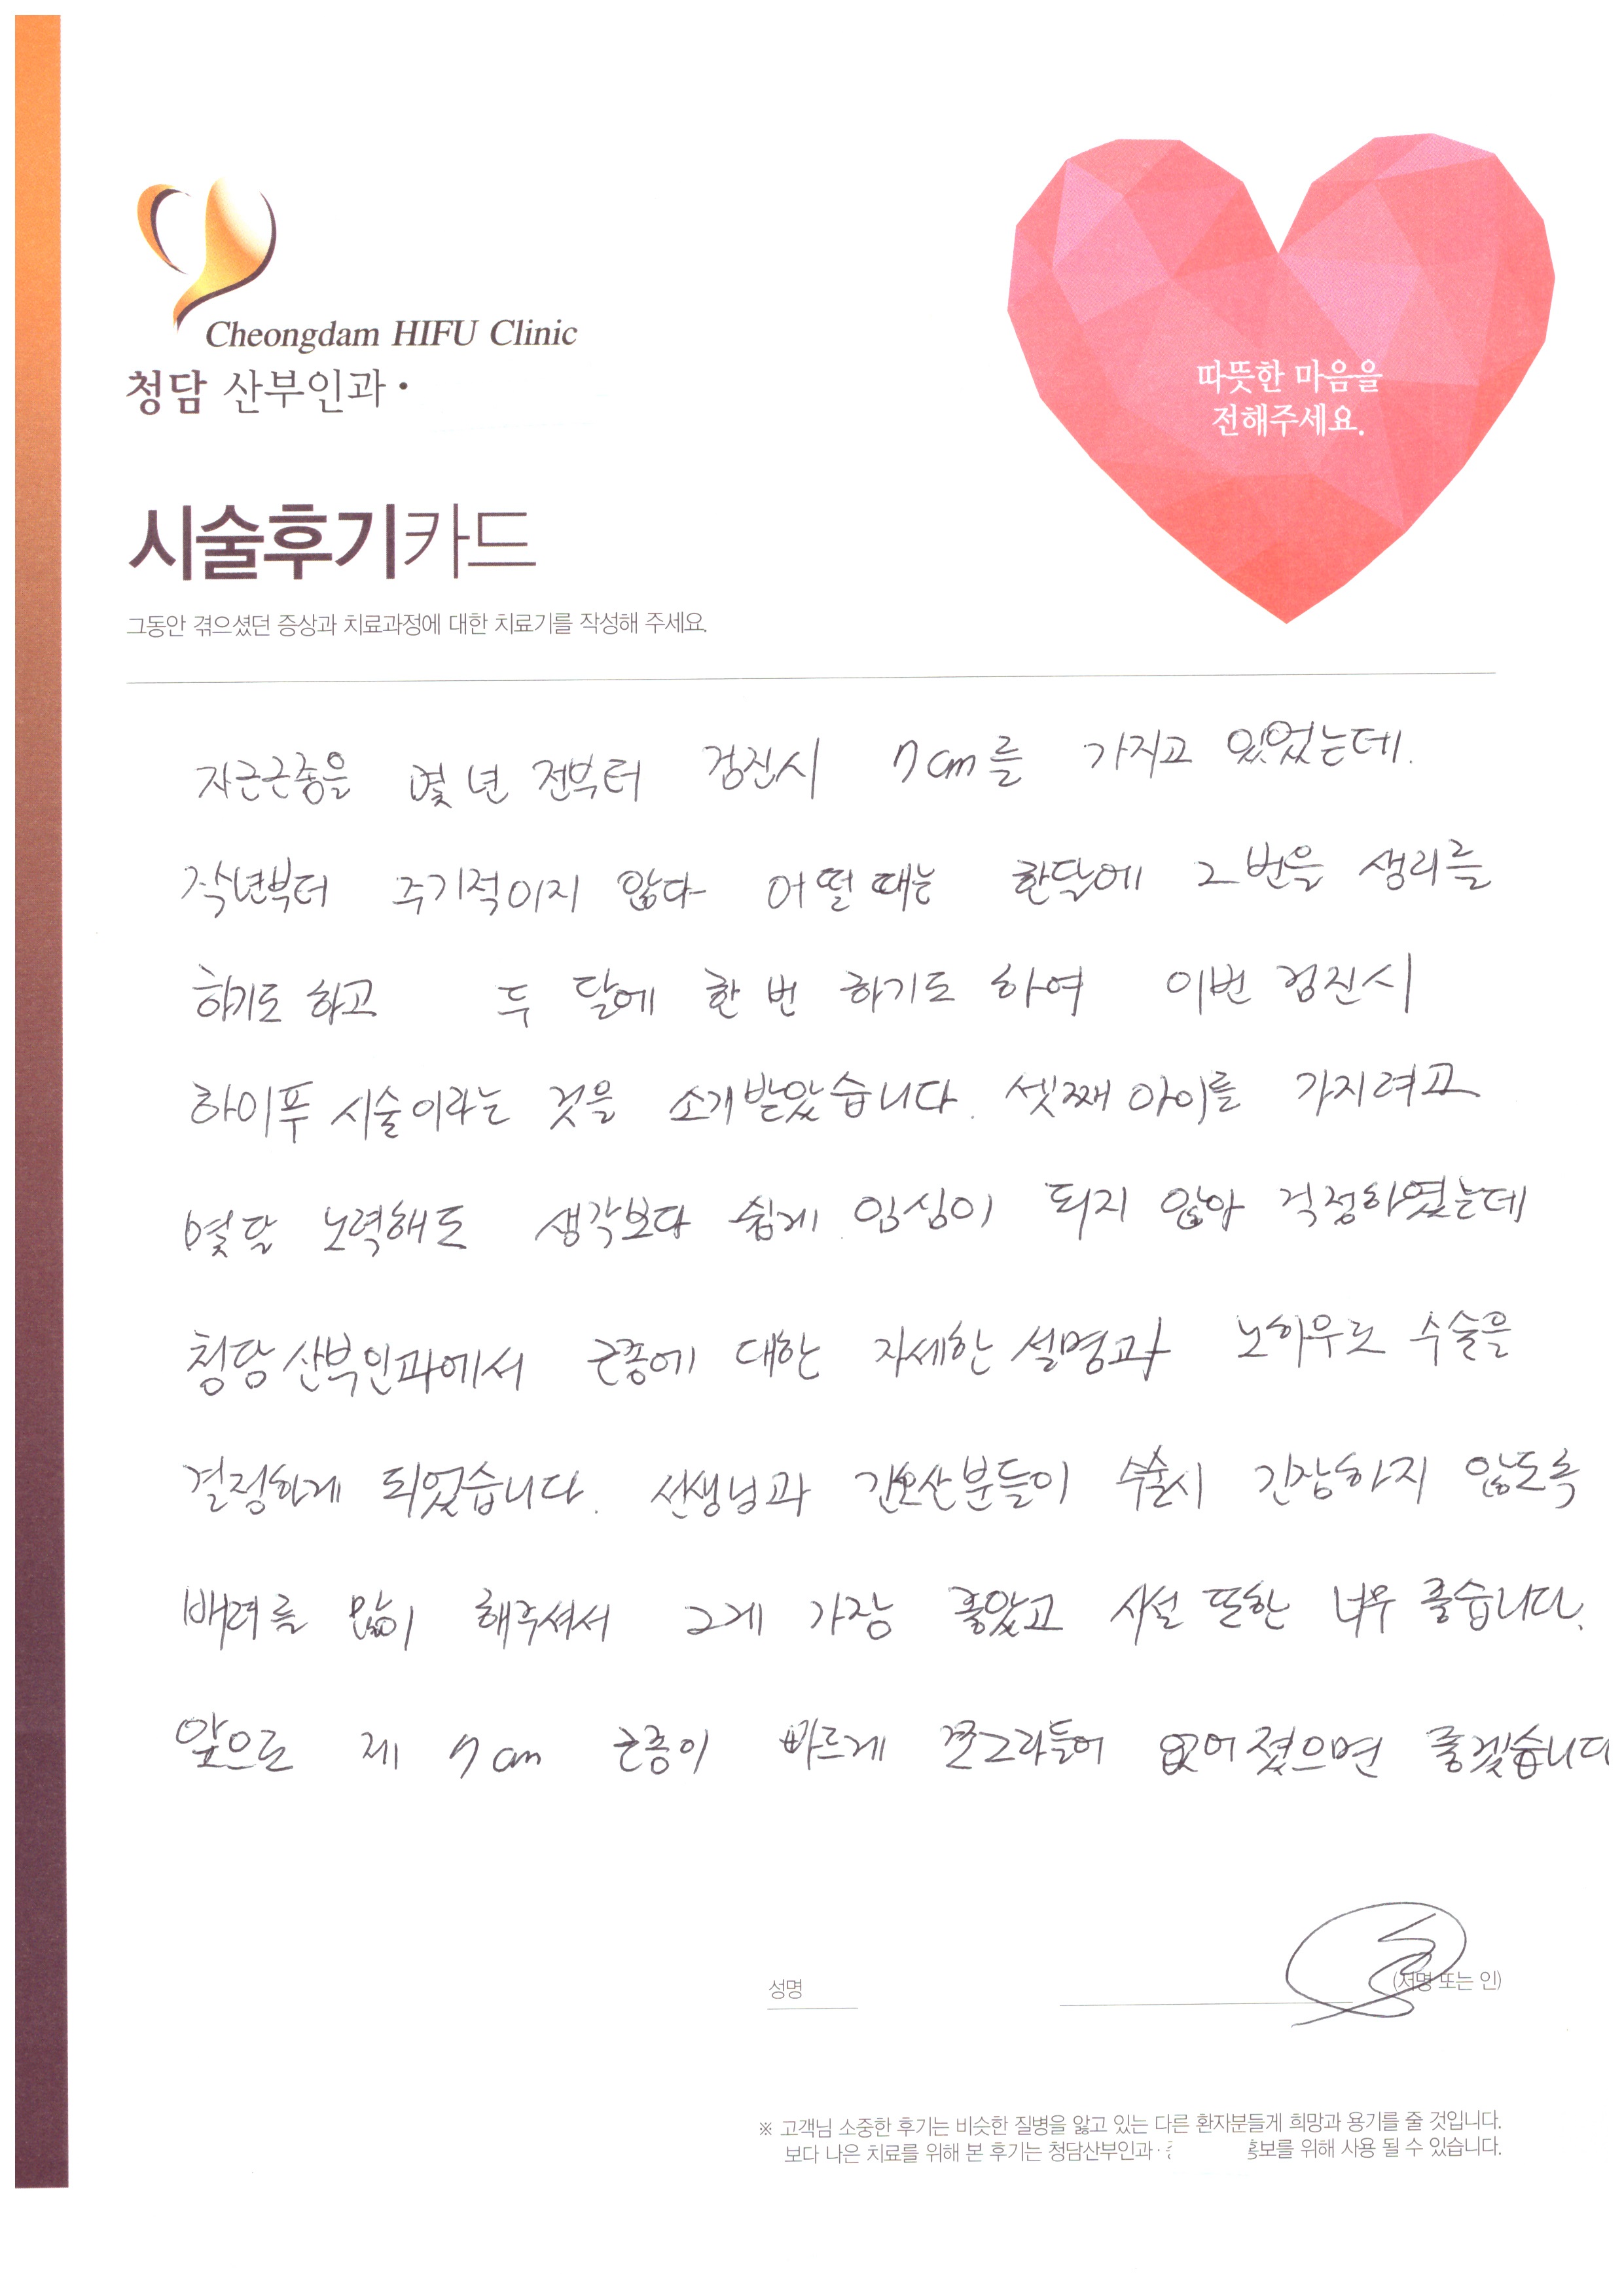 Cheongdam HIFU Clinic
청담 산부인과·
따뜻한 마음을
전해주세요.
시술후기카드
그동안 겪으셨던 증상과 치료과정에 대한 치료기를 작성해 주세요.
자근근종을 몇 년 전부터 검진시 7cm를 가지고 있었는데.
작년부터 주기적이지 않다 어떨 때는 한달에 2번을 생리를
하기도 하고 두 달에 한 번 하기도 하여 이번 검진시
하이푸 시술이라는 것을 소개받았습니다. 셋째 아이를 가지려고
몇달 노력해도 생각보다 쉽게 임심이 되지 않아 걱정하였는데
청담산부인과에서 근종에 대한 자세한 설명과 노하우로 수술을
결정하게 되었습니다. 선생님과 간호사분들이 수술시 긴장하지 않도록
배려를 많이 해주셔서 그게 가장 좋았고 시설 또한 너무 좋습니다.
앞으로 제 7cm 근종이 빠르게 쫀그라들어 없어졌으면 좋겠습니다
성명
(서명 또는 인)
※ 고객님 소중한 후기는 비슷한 질병을 앓고 있는 다른 환자분들게 희망과 용기를 줄 것입니다.
보다 나은 치료를 위해 본 후기는 청담산부인과· 홍보를 위해 사용 될 수 있습니다.